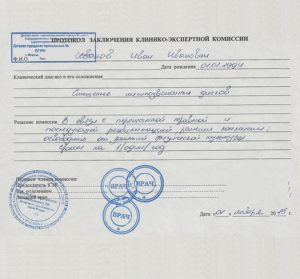 ПРОТОКОЛ ЗАКЛЮЧЕНИЯ КЛИНИКО-ЭКСПЕРТНОЙ КОМИССИИ
Ф.И.О. Иванов Иван Иванович
Дата рождения 01.01.1994
Клинический диагноз и его осложнения
Смещение межпозвонковых дисков
Решение комиссии: В связи с перенесенной травмой и
последующей реабилитацией решили
освободить от занятий физической культурой
сроком на 1/один/год
Подписи членов комиссии:
Председатель КЭК
Зав. отделением
Лечащий врач
ВРАЧ
ВРАЧ
ВРАЧ
Дата 01 января